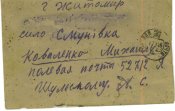 г Житомир
село Смунівка
Коваленко Михайлу
полевая почта 527/2 Л
Шумскому А. С.